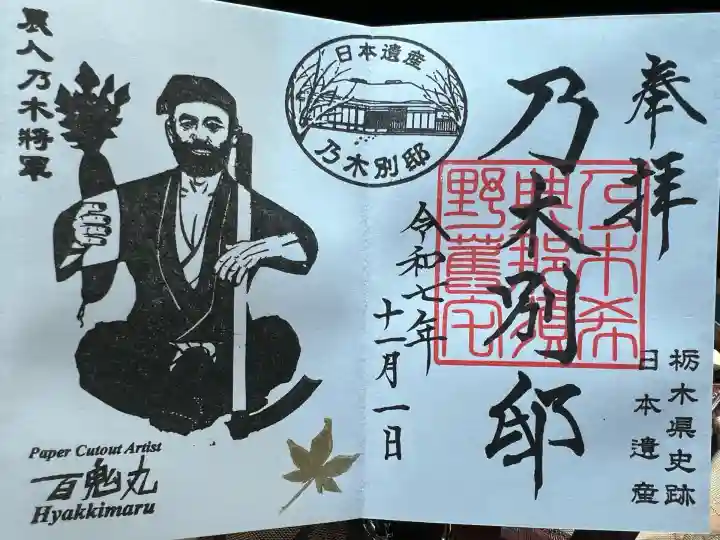 奉拝
乃木別邸
乃木希
典那須
野舊宅
栃木県史跡
日本遺産
令和七年
十一月一日
日本遺産
乃木別邸
農人乃木将軍
Paper Cutout Artist
百鬼丸
Hyakkimaru